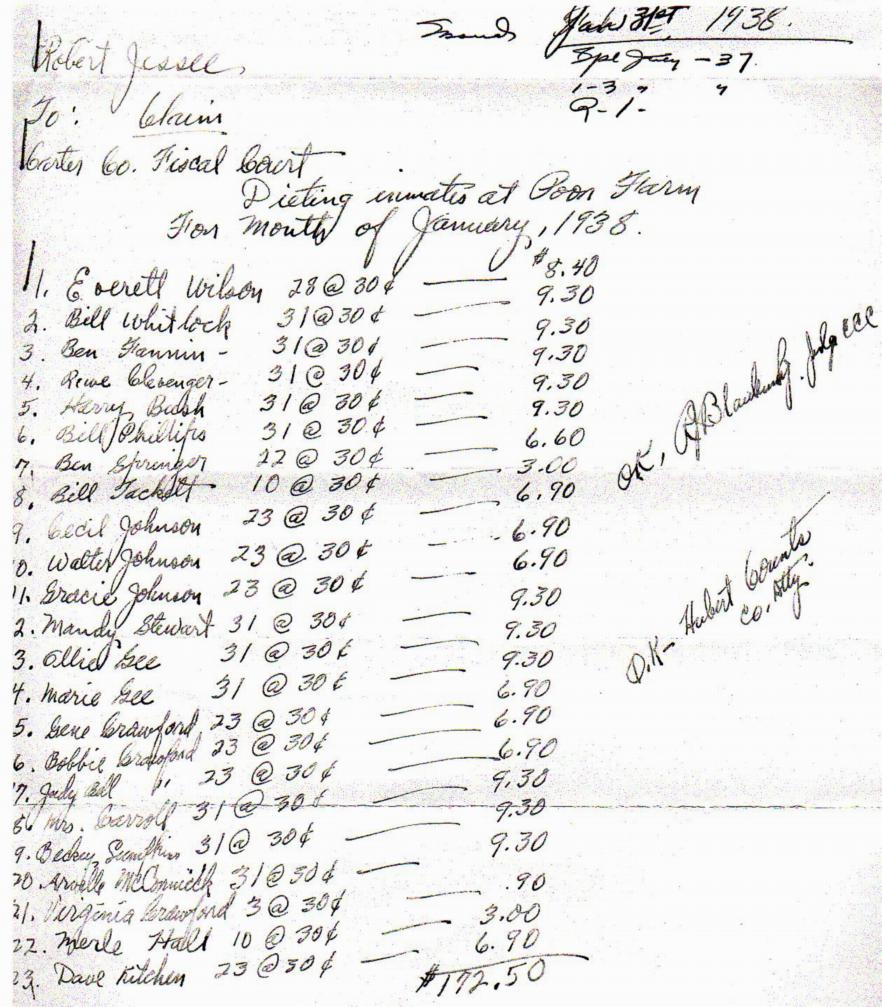 Issued Jan 31st, 1938.
Robert Jessee
Spe Jany - 37.
1-3 " "
Q-1-
To: Claim
Carter Co. Fiscal Court
Dieting inmates at Poor Farm
For Month of January, 1938.
1. Everett Wilson 28 @ 30¢ — $8.40
2. Bill Whitlock 31 @ 30¢ — 9.30
3. Ben Fannin - 31 @ 30¢ — 9.30
4. Clevenger - 31 @ 30¢ — 9.30
5. Harry Bush 31 @ 30¢ — 9.30
6. Bill Phillips 31 @ 30¢ — 9.30
7. Ben Springer 22 @ 30¢ — 6.60
8. Bill Tackett 10 @ 30¢ — 3.00
9. Cecil Johnson 23 @ 30¢ — 6.90
0. Walter Johnson 23 @ 30¢ — 6.90
11. Gracie Johnson 23 @ 30¢ — 6.90
2. Mandy Stewart 31 @ 30¢ — 9.30
3. Ollie Gee 31 @ 30¢ — 9.30
4. Marie Gee 31 @ 30¢ — 9.30
5. Gene Crawford 23 @ 30¢ — 6.90
6. Bobbie Crawford 23 @ 30¢ — 6.90
7. Judy " 23 @ 30¢ — 6.90
8. Mrs. Carroll 31 @ 30¢ — 9.30
9. Beckey 31 @ 30¢ — 9.30
20. McCormick 31 @ 30¢ — 9.30
21. Virginia Crawford 3 @ 30¢ — .90
22. Merle Hall 10 @ 30¢ — 3.00
23. Dave Kitchen 23 @ 30¢ — 6.90
$172.50
OK, Judge CCC
O.K- Hubert Counts
Co. Atty.